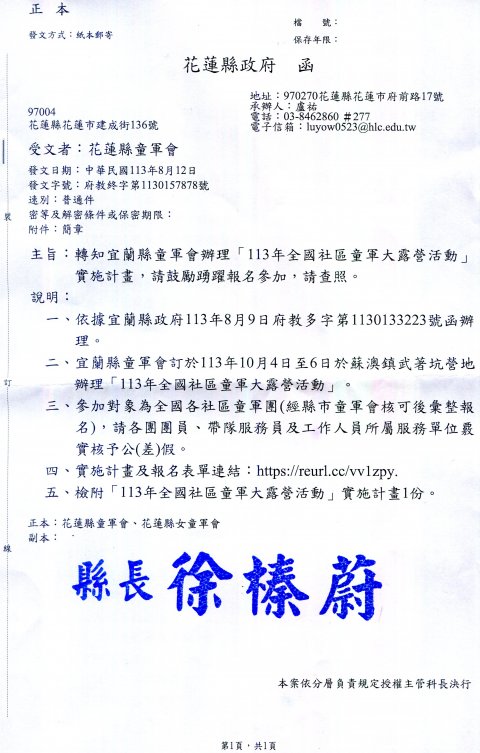 正　本
檔　　號：
保存年限：
發文方式：紙本郵寄
花蓮縣政府　函
地址：970270花蓮縣花蓮市府前路17號
承辦人：盧祐
電話：03-8462860 #277
電子信箱：luyow0523@hlc.edu.tw
97004
花蓮縣花蓮市建成街136號
受文者：花蓮縣童軍會
發文日期：中華民國113年8月12日
發文字號：府教終字第1130157878號
速別：普通件
密等及解密條件或保密期限：
附件：簡章
主旨：轉知宜蘭縣童軍會辦理「113年全國社區童軍大露營活動」
實施計畫，請鼓勵踴躍報名參加，請查照。
說明：
一、依據宜蘭縣政府113年8月9日府教多字第1130133223號函辦
理。
二、宜蘭縣童軍會訂於113年10月4日至6日於蘇澳鎮武荖坑營地
辦理「113年全國社區童軍大露營活動」。
三、參加對象為全國各社區童軍團(經縣市童軍會核可後彙整報
名)，請各團團員、帶隊服務員及工作人員所屬服務單位覈
實核予公(差)假。
四、實施計畫及報名表單連結：https://reurl.cc/vv1zpy.
五、檢附「113年全國社區童軍大露營活動」實施計畫1份。
正本：花蓮縣童軍會、花蓮縣女童軍會
副本：
縣長 徐榛蔚
本案依分層負責規定授權主管科長決行
第1頁，共1頁
裝
訂
線